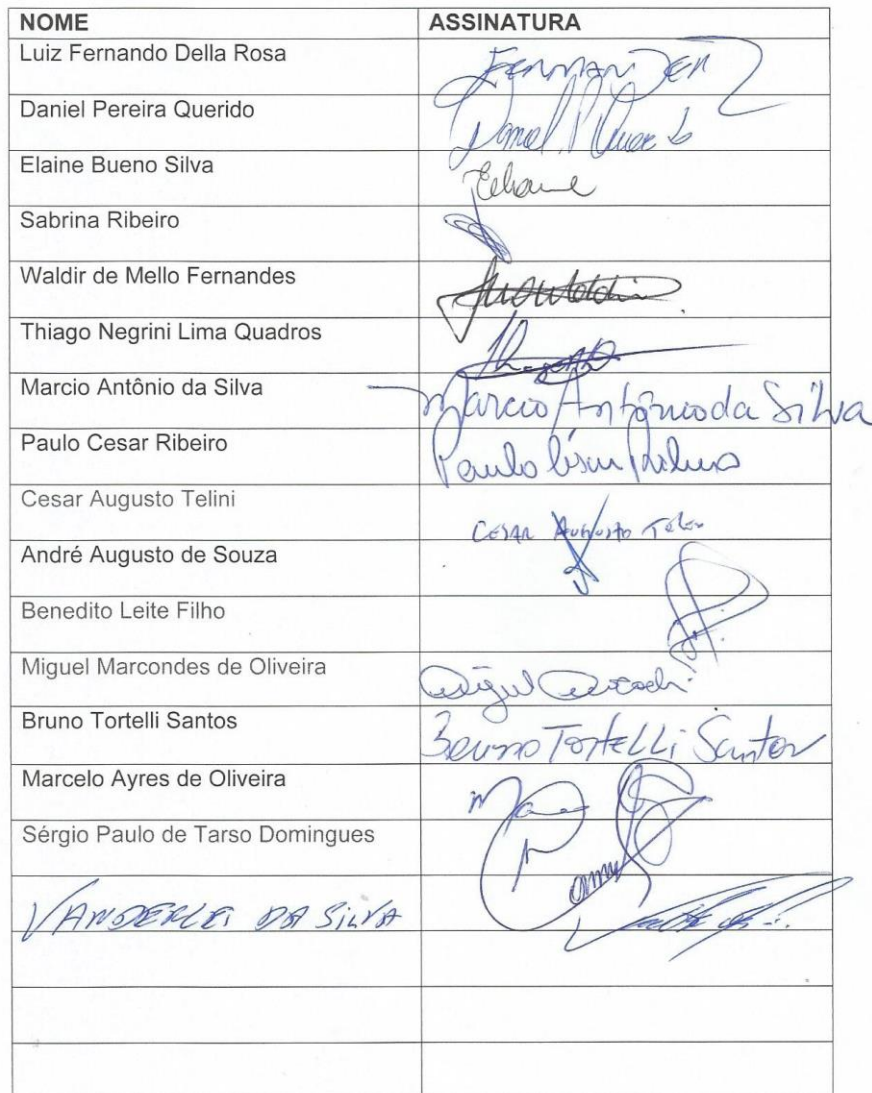 NOME ASSINATURA
Luiz Fernando Della Rosa
Daniel Pereira Querido Daniel P
Elaine Bueno Silva
Sabrina Ribeiro
Waldir de Mello Fernandes
Thiago Negrini Lima Quadros
Marcio Antônio da Silva Marcio Antônio da Silva
Paulo Cesar Ribeiro Paulo
Cesar Augusto Telini CESAR AUGUSTO
André Augusto de Souza
Benedito Leite Filho
Miguel Marcondes de Oliveira Miguel
Bruno Tortelli Santos Bruno TorteLLi Santos
Marcelo Ayres de Oliveira
Sérgio Paulo de Tarso Domingues
VANDERLEI DA SILVA